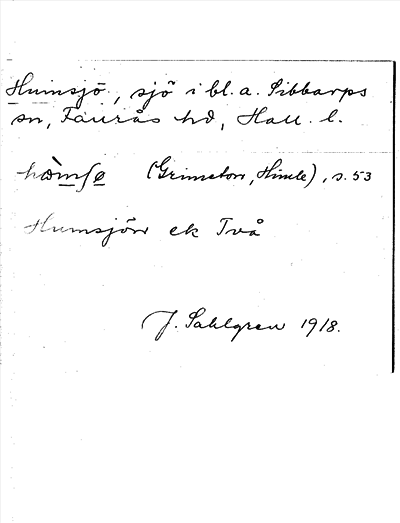 Humsjö, sjö i bl. a. Sibbarps
sn, Faurås hd, Hall. l.
hòmsø (Grimeton, Himle), s. 53
Humsjön ek Två
J. Sahlgren 1918.